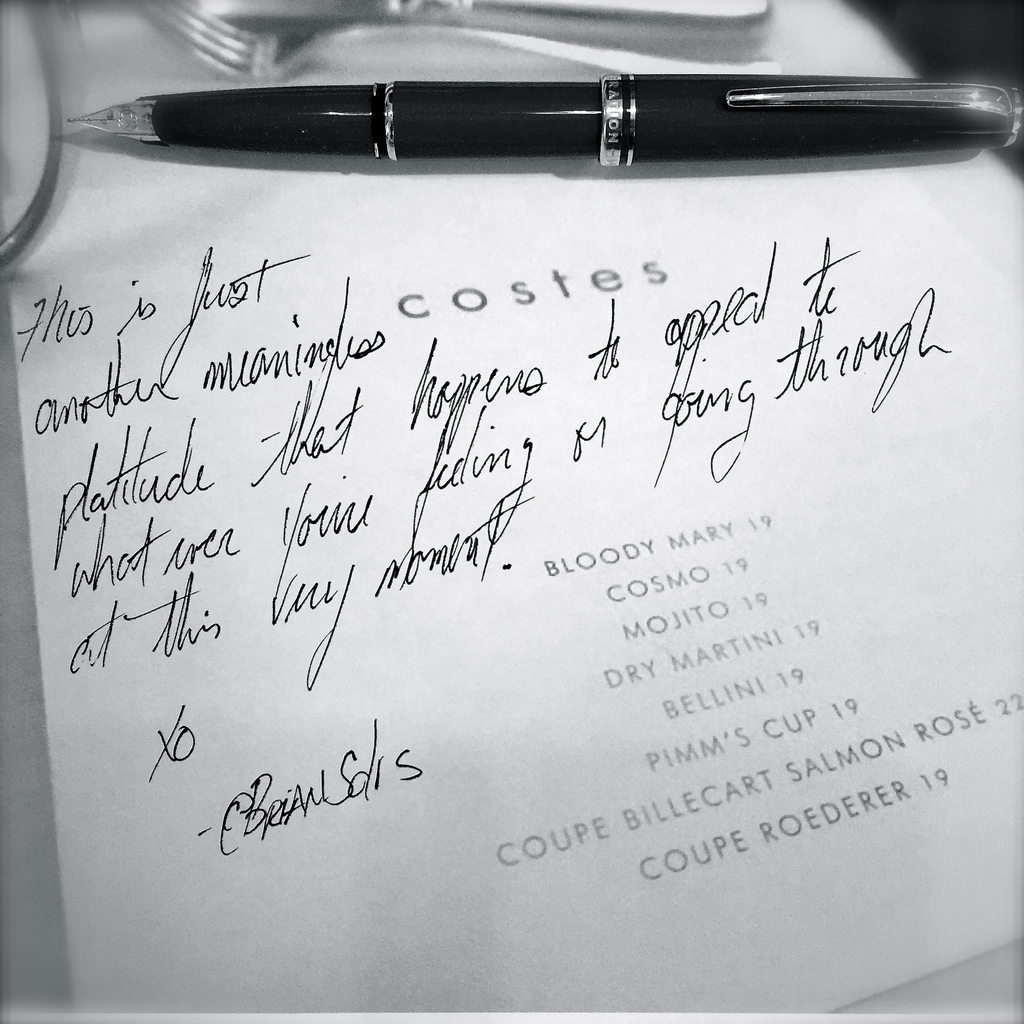 NATION
costes
This is just
another meaningless
platitude that happens to appeal to
whatever you're feeling or going through
at this very moment.
XO
- @BRIANSOLIS
BLOODY MARY 19
COSMO 19
MOJITO 19
DRY MARTINI 19
BELLINI 19
PIMM'S CUP 19
COUPE BILLECART SALMON ROSÉ 22
COUPE ROEDERER 19